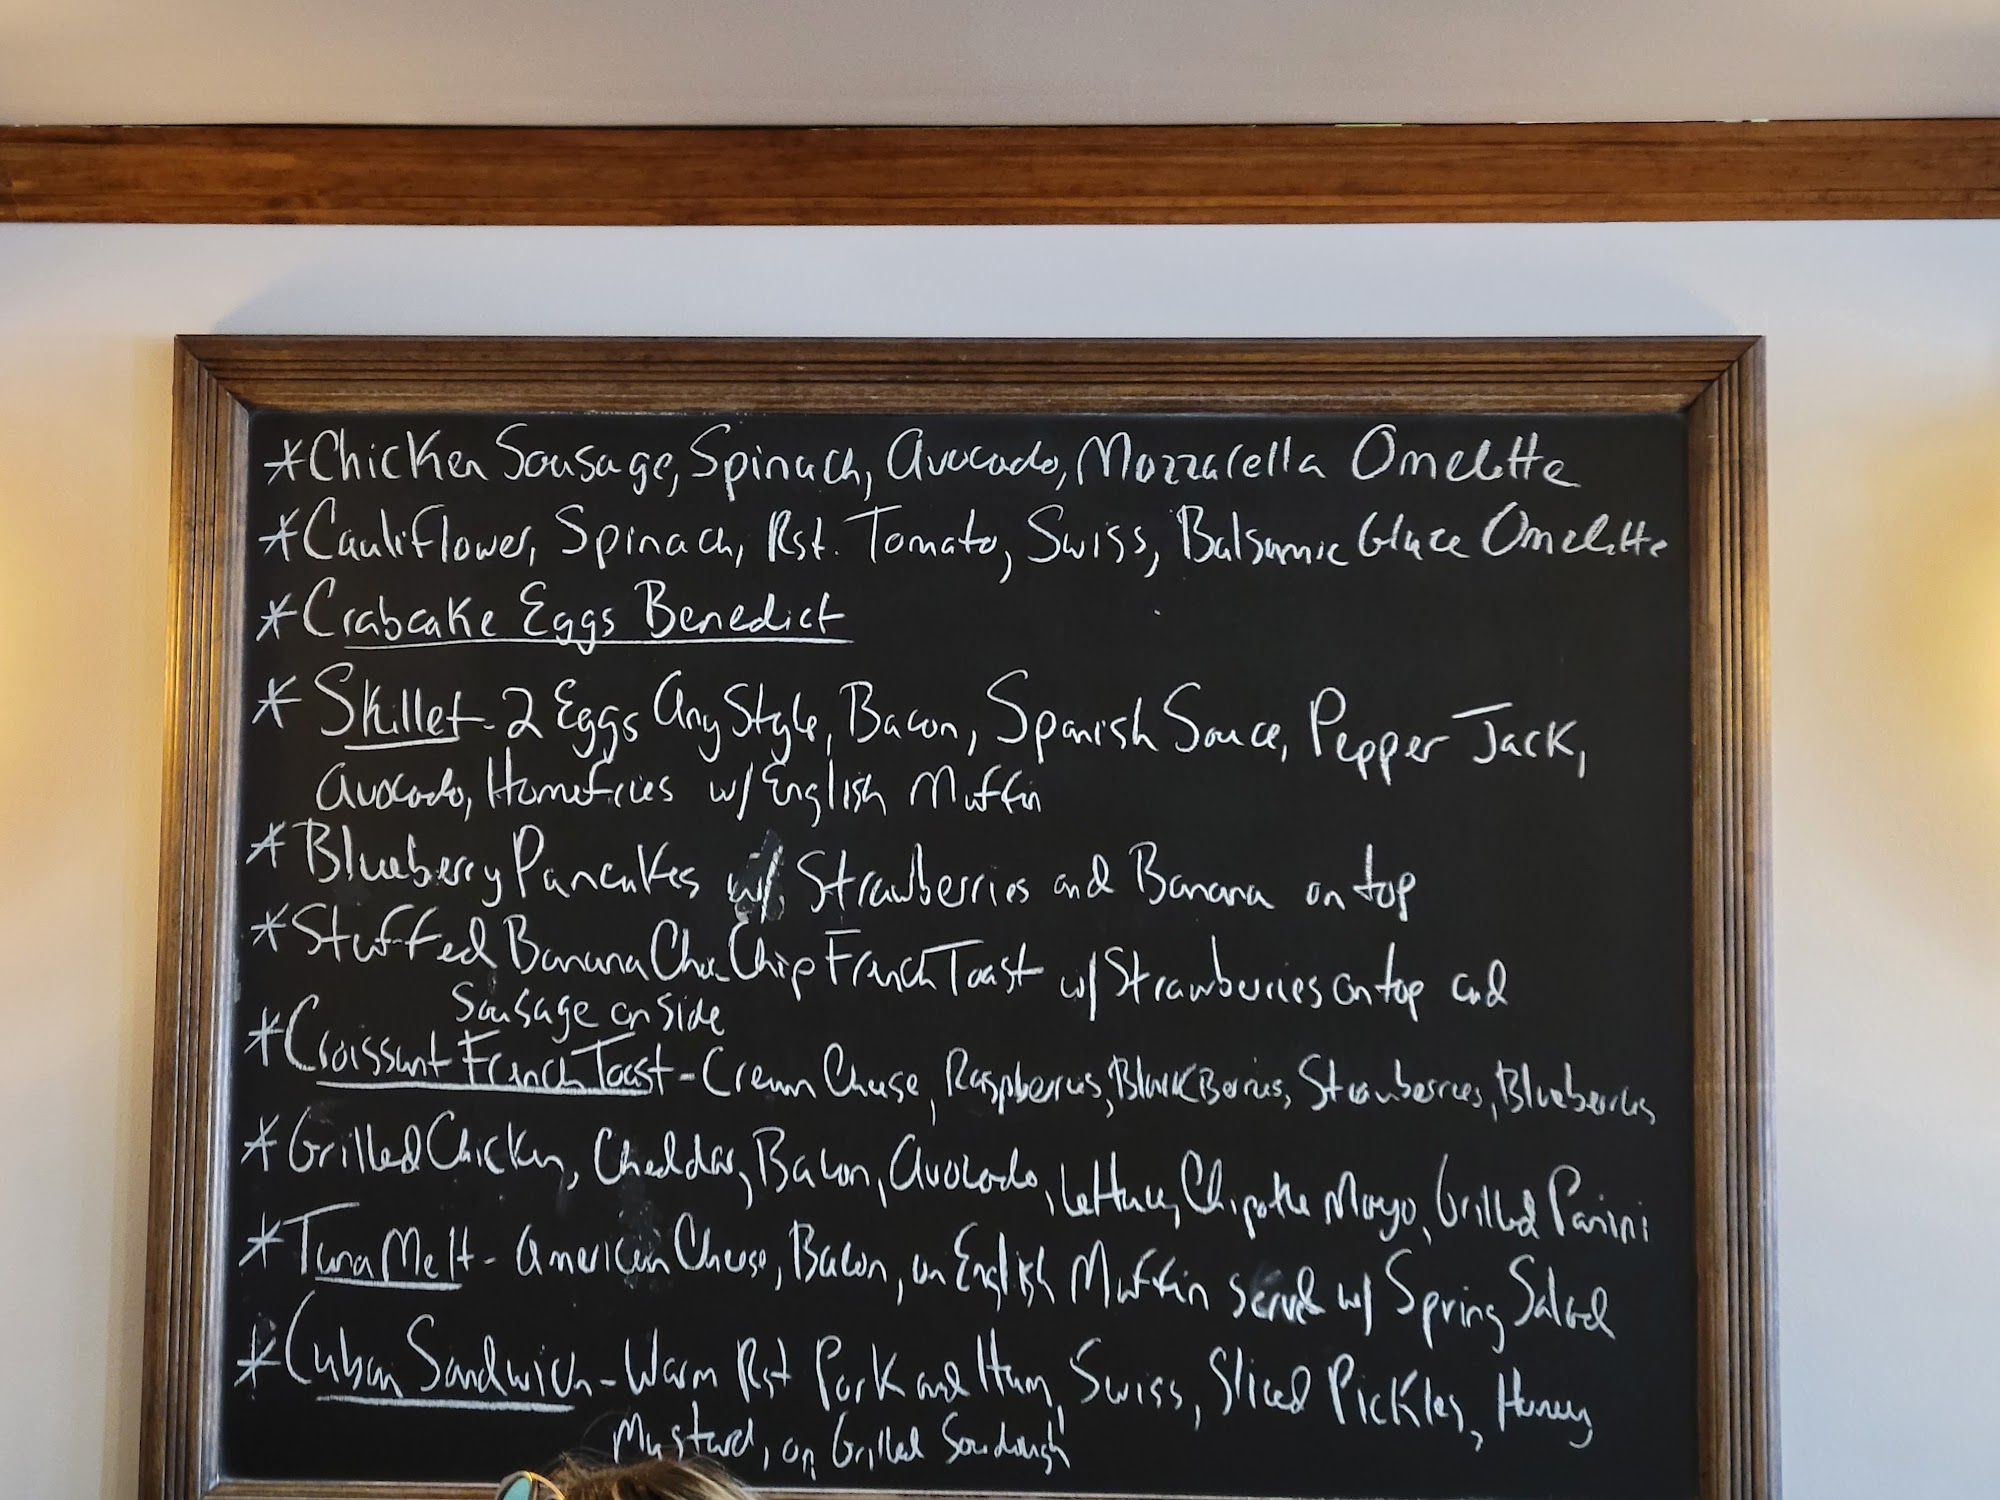 *Chicken Sausage, Spinach, Avocado, Mozzarella Omelette
*Cauliflower, Spinach, Rst. Tomato, Swiss, Balsamic Glaze Omelette
*Crabcake Eggs Benedict
*Skillet - 2 Eggs Any Style, Bacon, Spanish Sauce, Pepper Jack,
Avocado, Homefries w/ English Muffin
*Blueberry Pancakes w/ Strawberries and Banana on top
*Stuffed Banana Choc Chip French Toast w/ Strawberries on top and
Sausage on side
*Croissant French Toast - Cream Cheese, Raspberries, BlackBerries, Strawberries, Blueberries
*Grilled Chicken, Cheddar, Bacon, Avocado, Lettuce, Chipotle Mayo, Grilled Panini
*Tuna Melt - American Cheese, Bacon, on English Muffin served w/ Spring Salad
*Cuban Sandwich - Warm Rst Pork and Ham, Swiss, Sliced Pickles, Honey
Mustard, on Grilled Sourdough